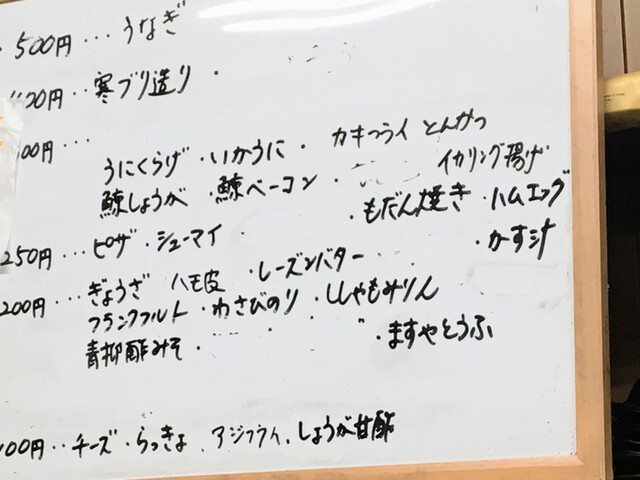 500円…うなぎ
400円‥寒ブリ造り・
00円‥・
うにくらげ・いかうに・ カキフライ とんかつ
鯨しょうが・鯨ベーコン・ イカリング揚げ
・もだん焼き・ハムエッグ
250円…ピザ・シューマイ・ ・かす汁
200円…ぎょうざ ハモ皮・レーズンバター
フランクフルト・わさびのり・ししゃもみりん
青柳酢みそ・ ・ますやとうふ
100円‥チーズ・らっきょ、アジフライ、しょうが甘酢